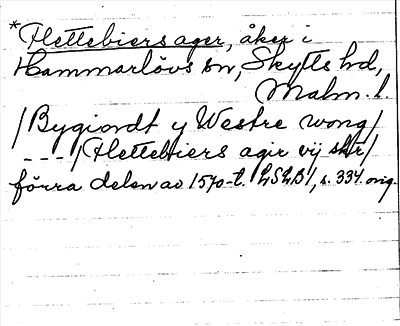 *Flettebiers ager, åker i
Hammarlövs sn, Skytts hd,
Malm. l.
/Bygiordt y Westre wong/
---/Flettebiers agir vij skr/
förra delen av 1570-t. LSLB1, s. 334 orig.